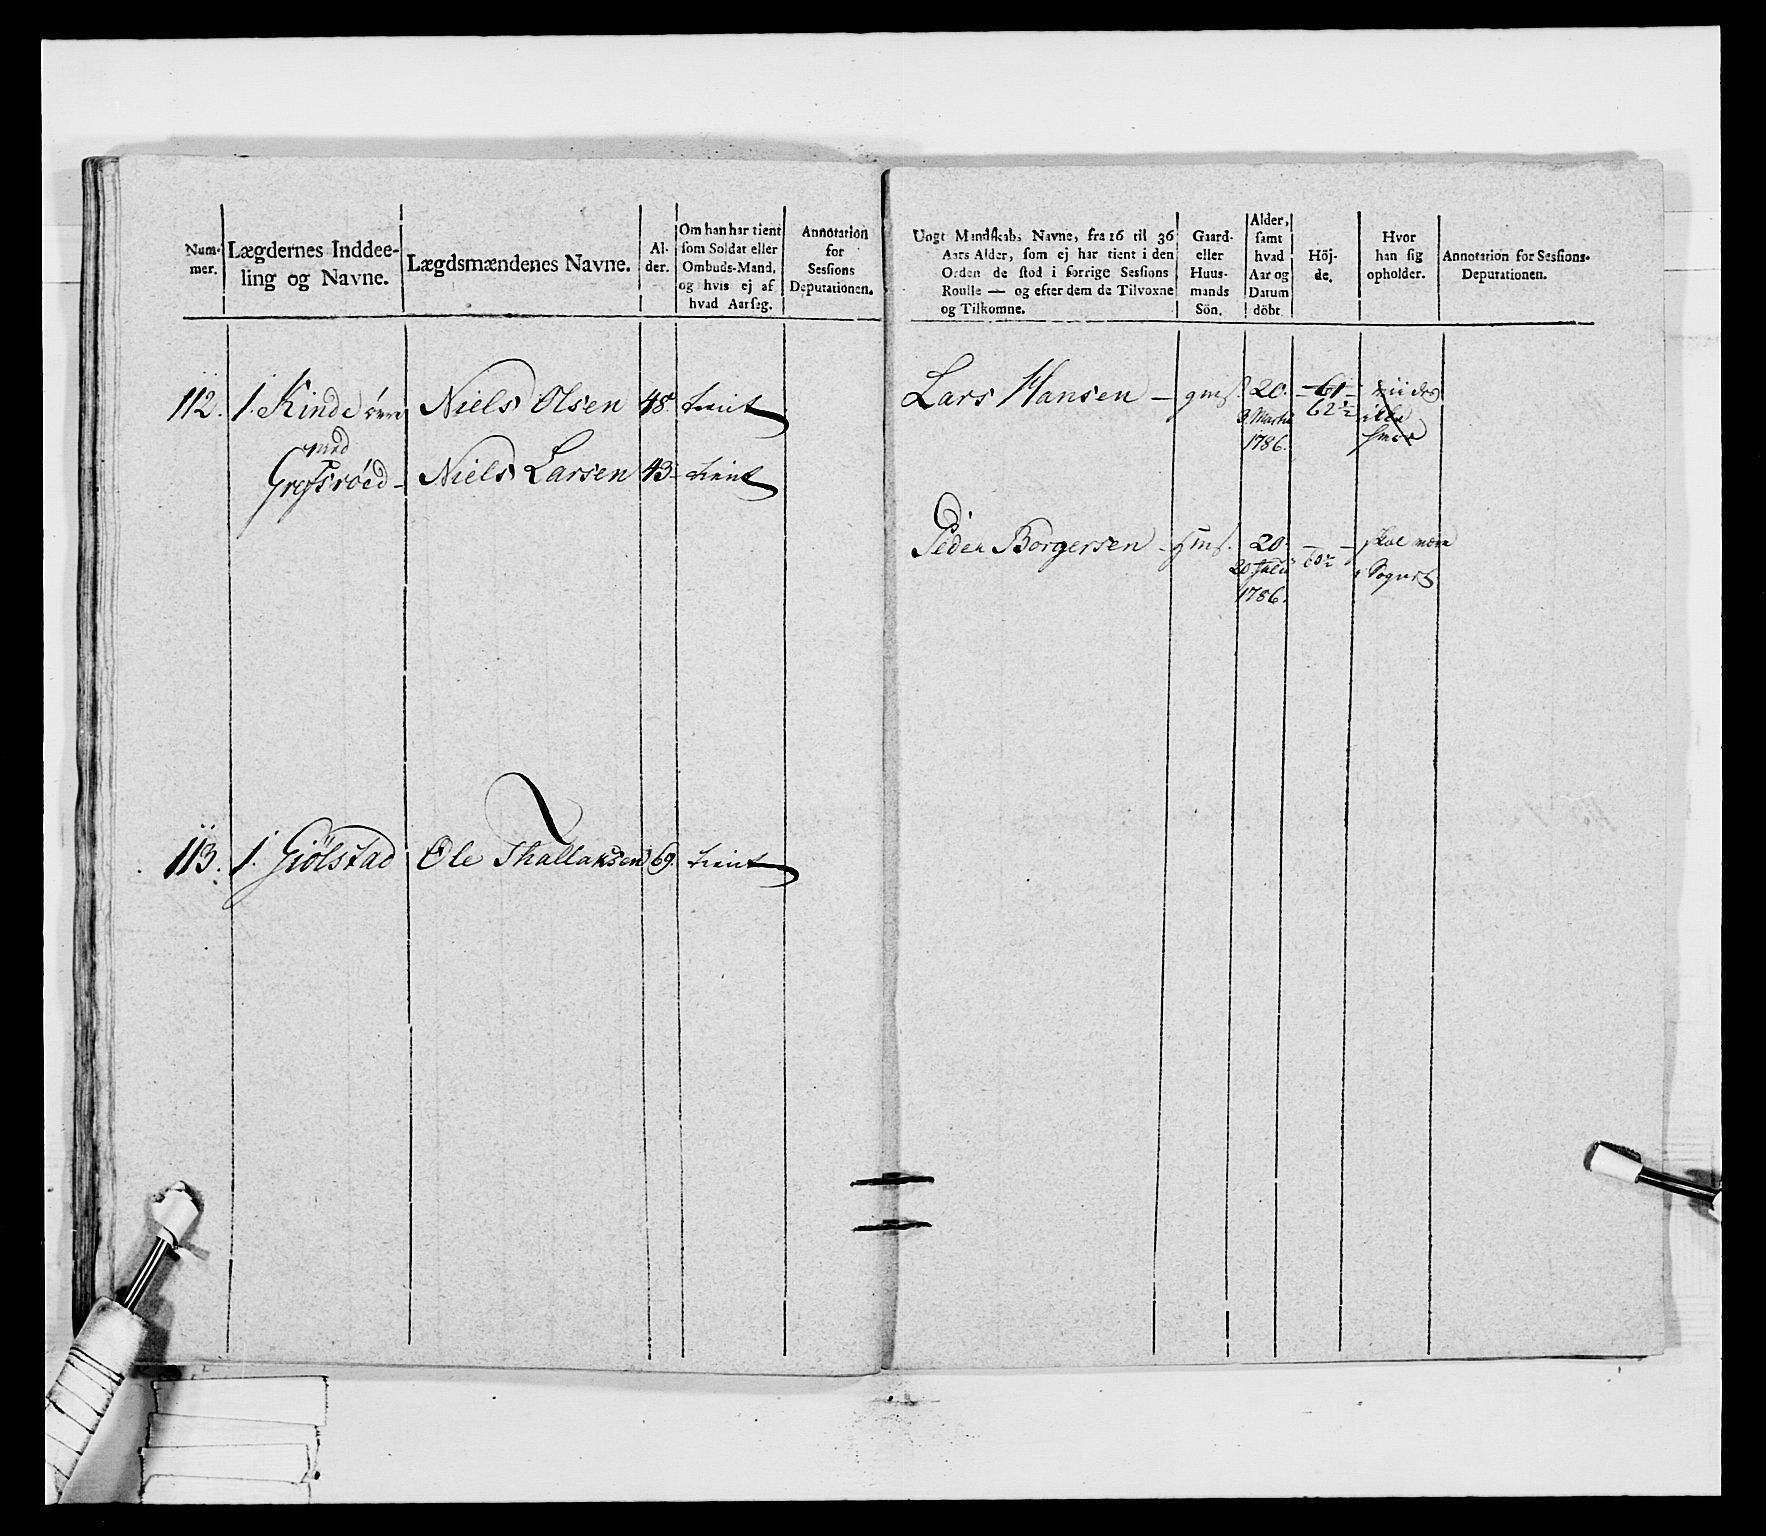 Num-
mer.
Lægdernes Inddee-
ling og Navne.
Lægdsmændenes Navne.
Al-
der.
Om han har tient
som Soldat eller
Ombuds-Mand,
og hvis ej af
hvad Aarsag.
Annotation
for
Sessions
Deputationen.
Ungt Mandskabs Navne, fra 16 til 36
Aars Alder, som ej har tient i den
Orden de stod i forrige Sessions
Roulle — og efter dem de Tilvoxne
og Tilkomne.
Gaard-
eller
Huus-
mands
Sön.
Alder,
samt
hvad
Aar og
Datum
döbt
Höj-
de.
Hvor
han sig
opholder.
Annotation for Sessions-
Deputationen.
112. 1. Kinde Niels Olsen 48. tient
med
Niels Larsen 43- tient
Lars Hansen — gms. 20. 61
62½
Martii
1786.
Peder Borgersen - gms. 20.
20
1786.
60½
skal være
i Sognet
113. 1. Giølstad Ole Thallaksen 69. tient